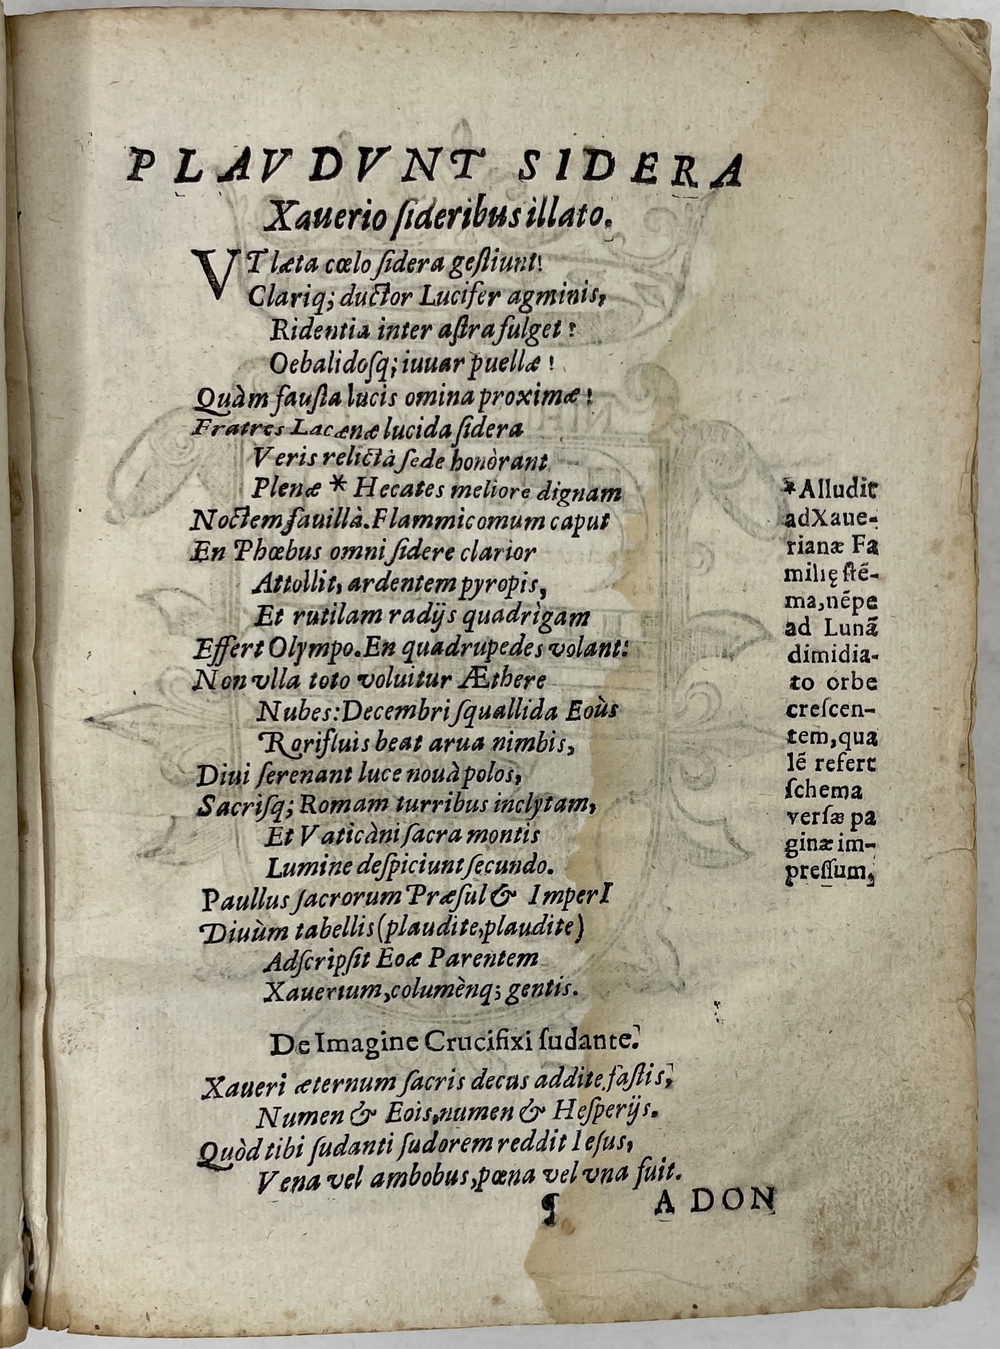 PLAVDVNT SIDERA
Xauerio ſideribus illato.
VT læta cœlo ſidera geſtiunt!
Clariq; ductor Lucifer agminis,
Ridentia inter aſtra fulget!
Oebalidoſq; iuuar puellæ!
Quàm fauſta lucis omina proximæ!
Fratres Lacænæ lucida ſidera
Veris relictà ſede honòrant
Plenæ * Hecates meliore dignam
Noctem fauillà. Flammicomum caput
En Phœbus omni ſidere clarior
Attollit, ardentem pyropis,
Et rutilam radijs quadrìgam
Effert Olympo. En quadrupedes volant!
Non vlla toto voluitur Æthere
Nubes: Decembri ſquallida Eoùs
Rorifluis beat arua nimbis,
Diui ſerenant luce nouà polos,
Sacriſq; Romam turribus inclytam,
Et Vaticàni ſacra montis
Lumine deſpiciunt ſecundo.
Paullus ſacrorum Præſul & ImperI
Diuùm tabellis (plaudite, plaudite)
Adſcripſit Eoæ Parentem
Xauerium, columènq; gentis.
*Alludit
ad Xaue-
rianæ Fa
milię ſtē-
ma, nēpe
ad Lunā
dimidia-
to orbe
creſcen-
tem, qua
lē refert
ſchema
verſæ pa
ginæ im-
preſſum,
De Imagine Crucifixi ſudante.
Xaueri æternum ſacris decus addite faſtis,
Numen & Eois, numen & Heſperijs.
Quòd tibi ſudanti ſudorem reddit Ieſus,
Vena vel ambobus, pœna vel vna fuit.
¶ A DON